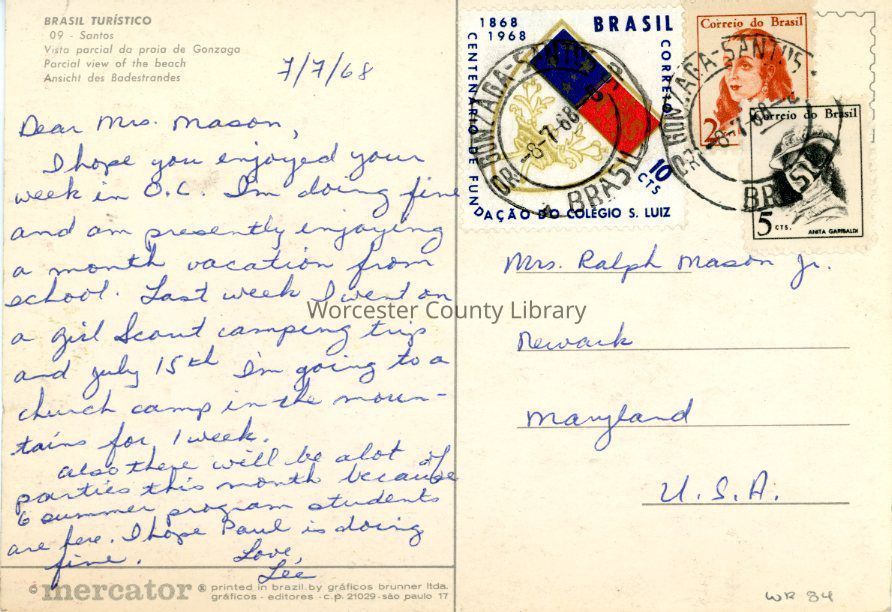 BRASIL TURÍSTICO
09 - Santos
Vista parcial da praia de Gonzaga
Parcial view of the beach
Ansicht des Badestrandes
7/7/68
Dear Mrs. Mason,
I hope you enjoyed your
week in O.C. I'm doing fine
and am presently enjoying
a month vacation from
school. Last week I went on
a girl Scout camping trip
and July 15th I'm going to a
church camp in the moun-
tains for 1 week.
Also there will be alot of
parties this month because
6 summer program students
are here. I hope Paul is doing
fine. Love,
Lee
© mercator ® printed in brazil.by gráficos brunner ltda.
gráficos - editores - c.p. 21029 - são paulo 17
1868
1968
BRASIL
CORREIO
10 CTS
CENTENÁRIO DE FUNDAÇÃO DO COLÉGIO S. LUIZ
Correio do Brasil
2
Correio do Brasil
5 CTS.
ANITA GARIBALDI
GONZAGA-SANTOS
-8-7-68
BRASIL
GONZAGA-SANTOS
-8-7-68
BRASIL
Mrs. Ralph Mason Jr.
Newark
Maryland
U.S.A.
Worcester County Library
WR 84